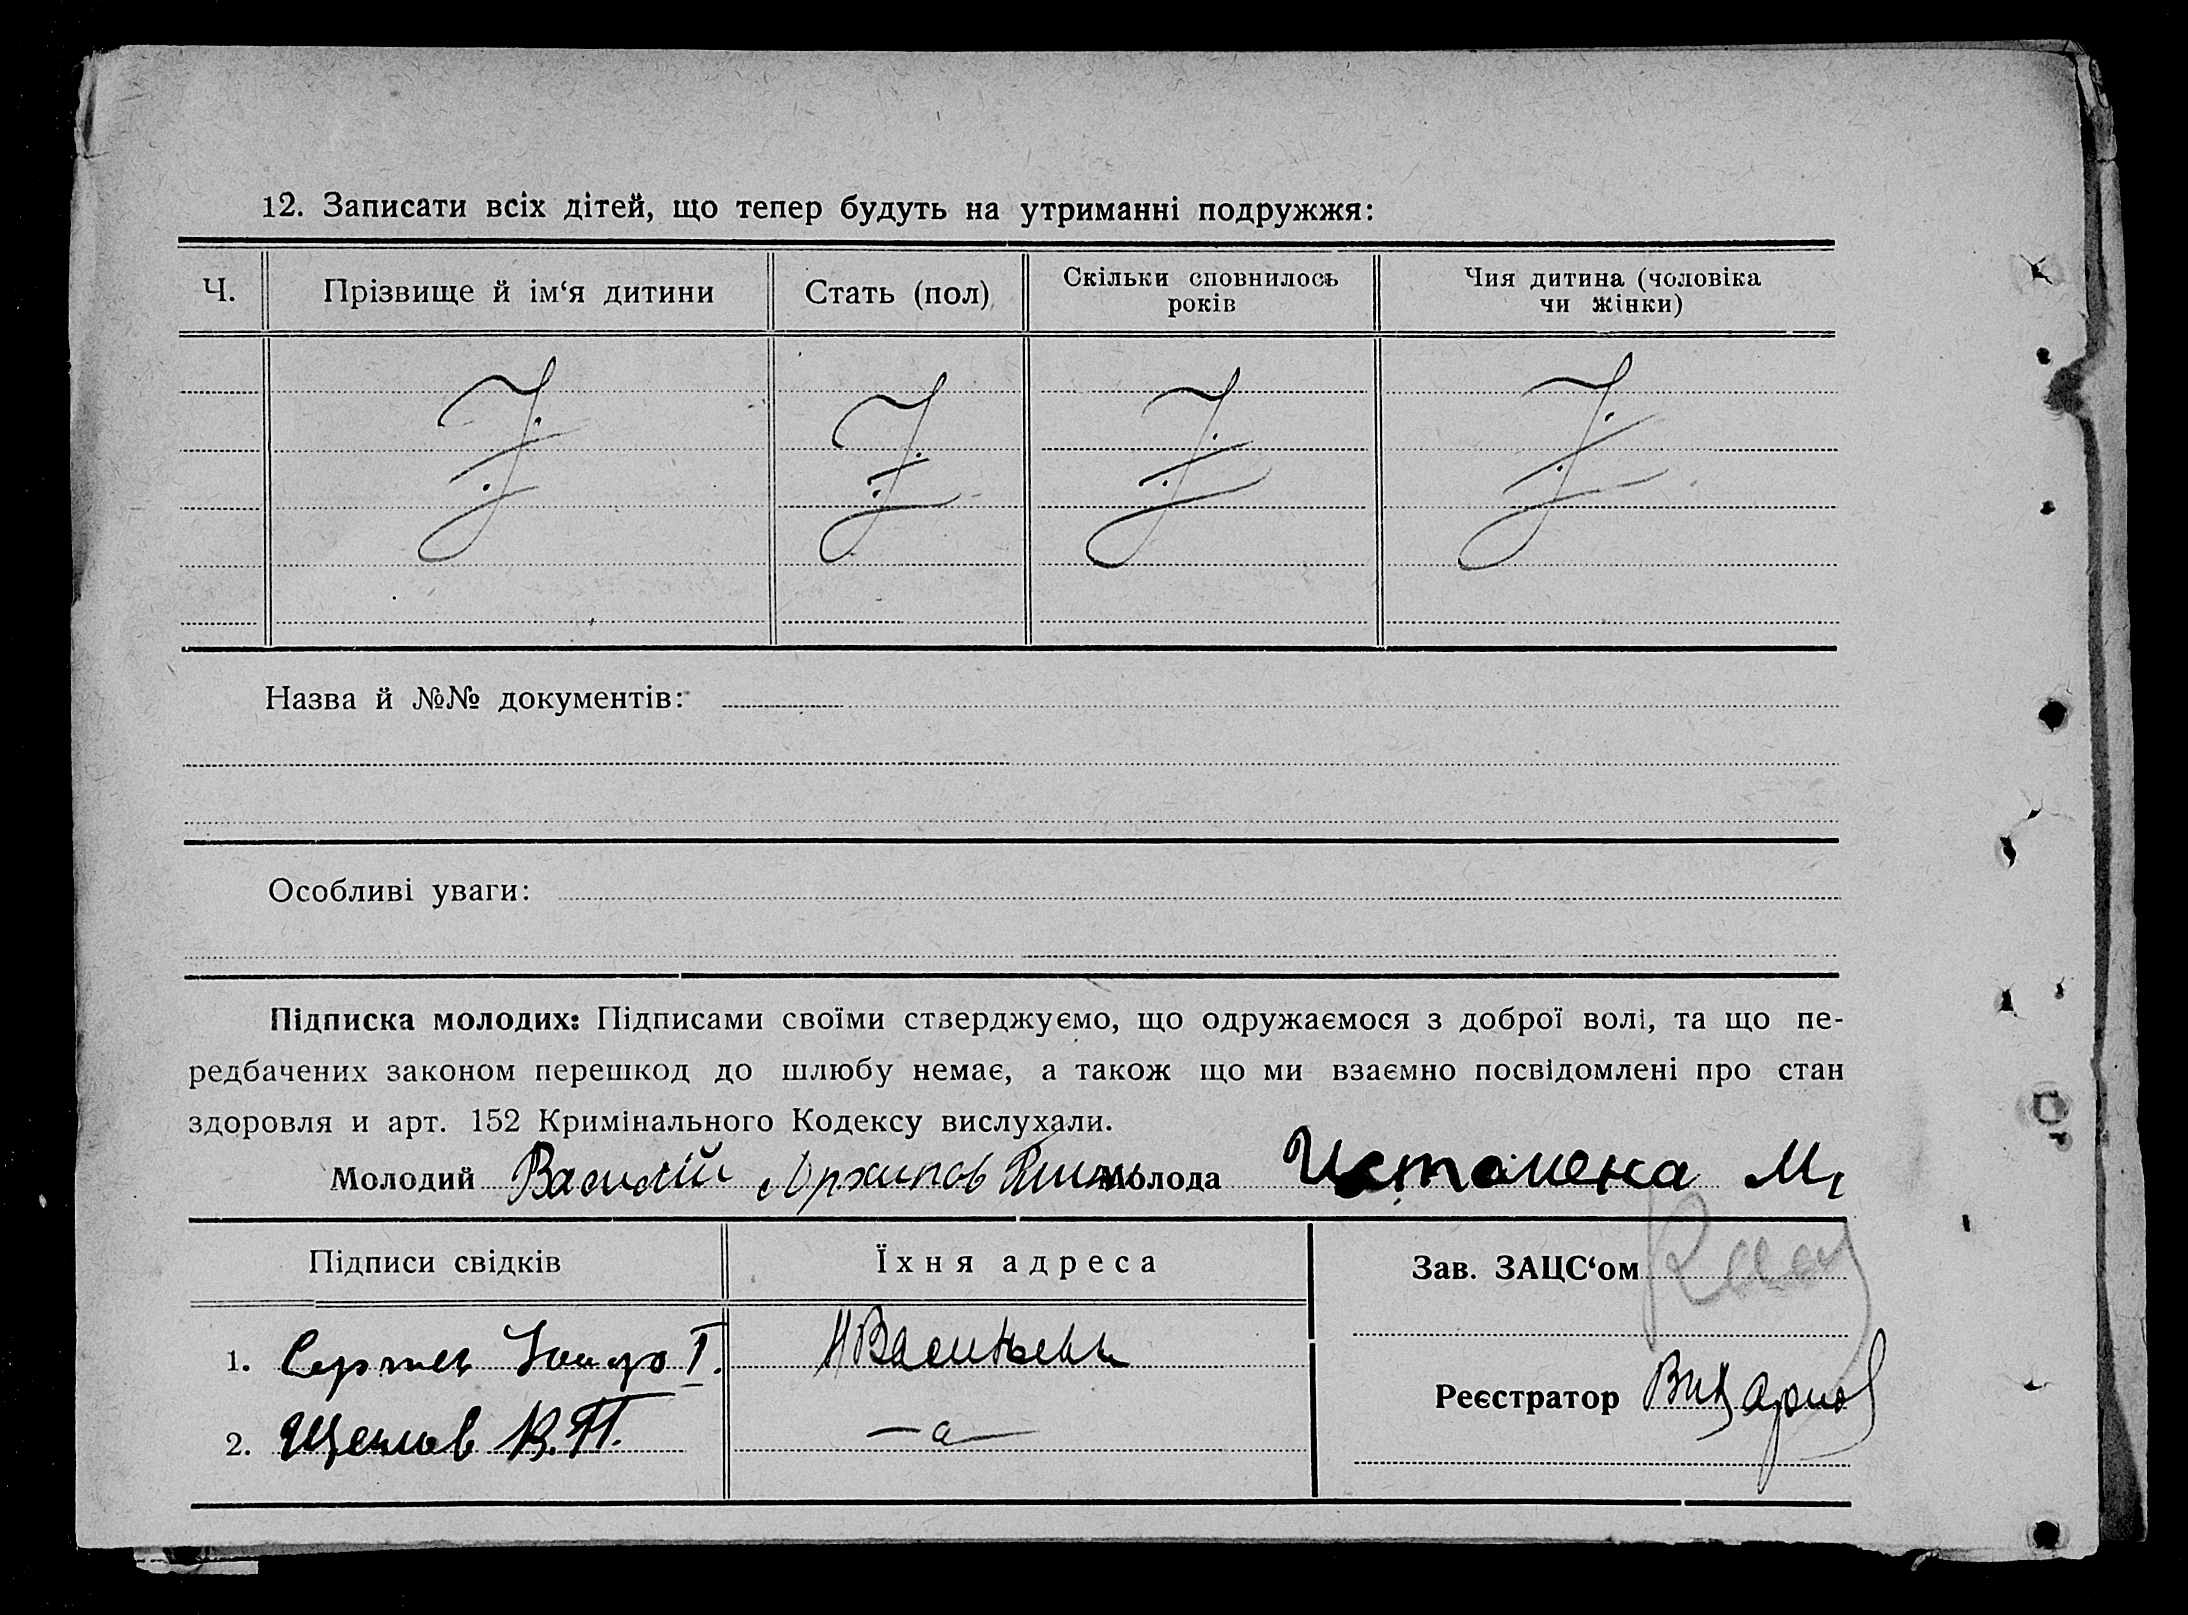 12. Записати всіх дітей, що тепер будуть на утриманні подружжя:
Ч. Прізвище й ім‘я дитини Стать (пол) Скільки сповнилось років Чия дитина (чоловіка чи жінки)
Назва й №№ документів:
Особливі уваги:
Підписка молодих: Підписами своїми стверджуємо, що одружаємося з доброї волі, та що пе-
редбачених законом перешкод до шлюбу немає, а також що ми взаємно посвідомлені про стан
здоровля и арт. 152 Кримінального Кодексу вислухали.
Молодий Василій Архипов Молода М,
Підписи свідків Їхня адреса Зав. ЗАЦС‘ом
1. Н Васильевк
2. В.П. —а—
Реєстратор